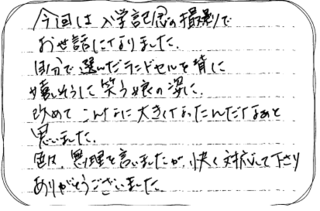 今回は入学記念の撮影で
お世話になりました。
自分で選んだランドセルを背に
嬉しそうに笑う娘の姿に、
改めてこんなに大きくなったんだなあと
思いました。
無理を言いましたが、快く対応して下さり
ありがとうございました。